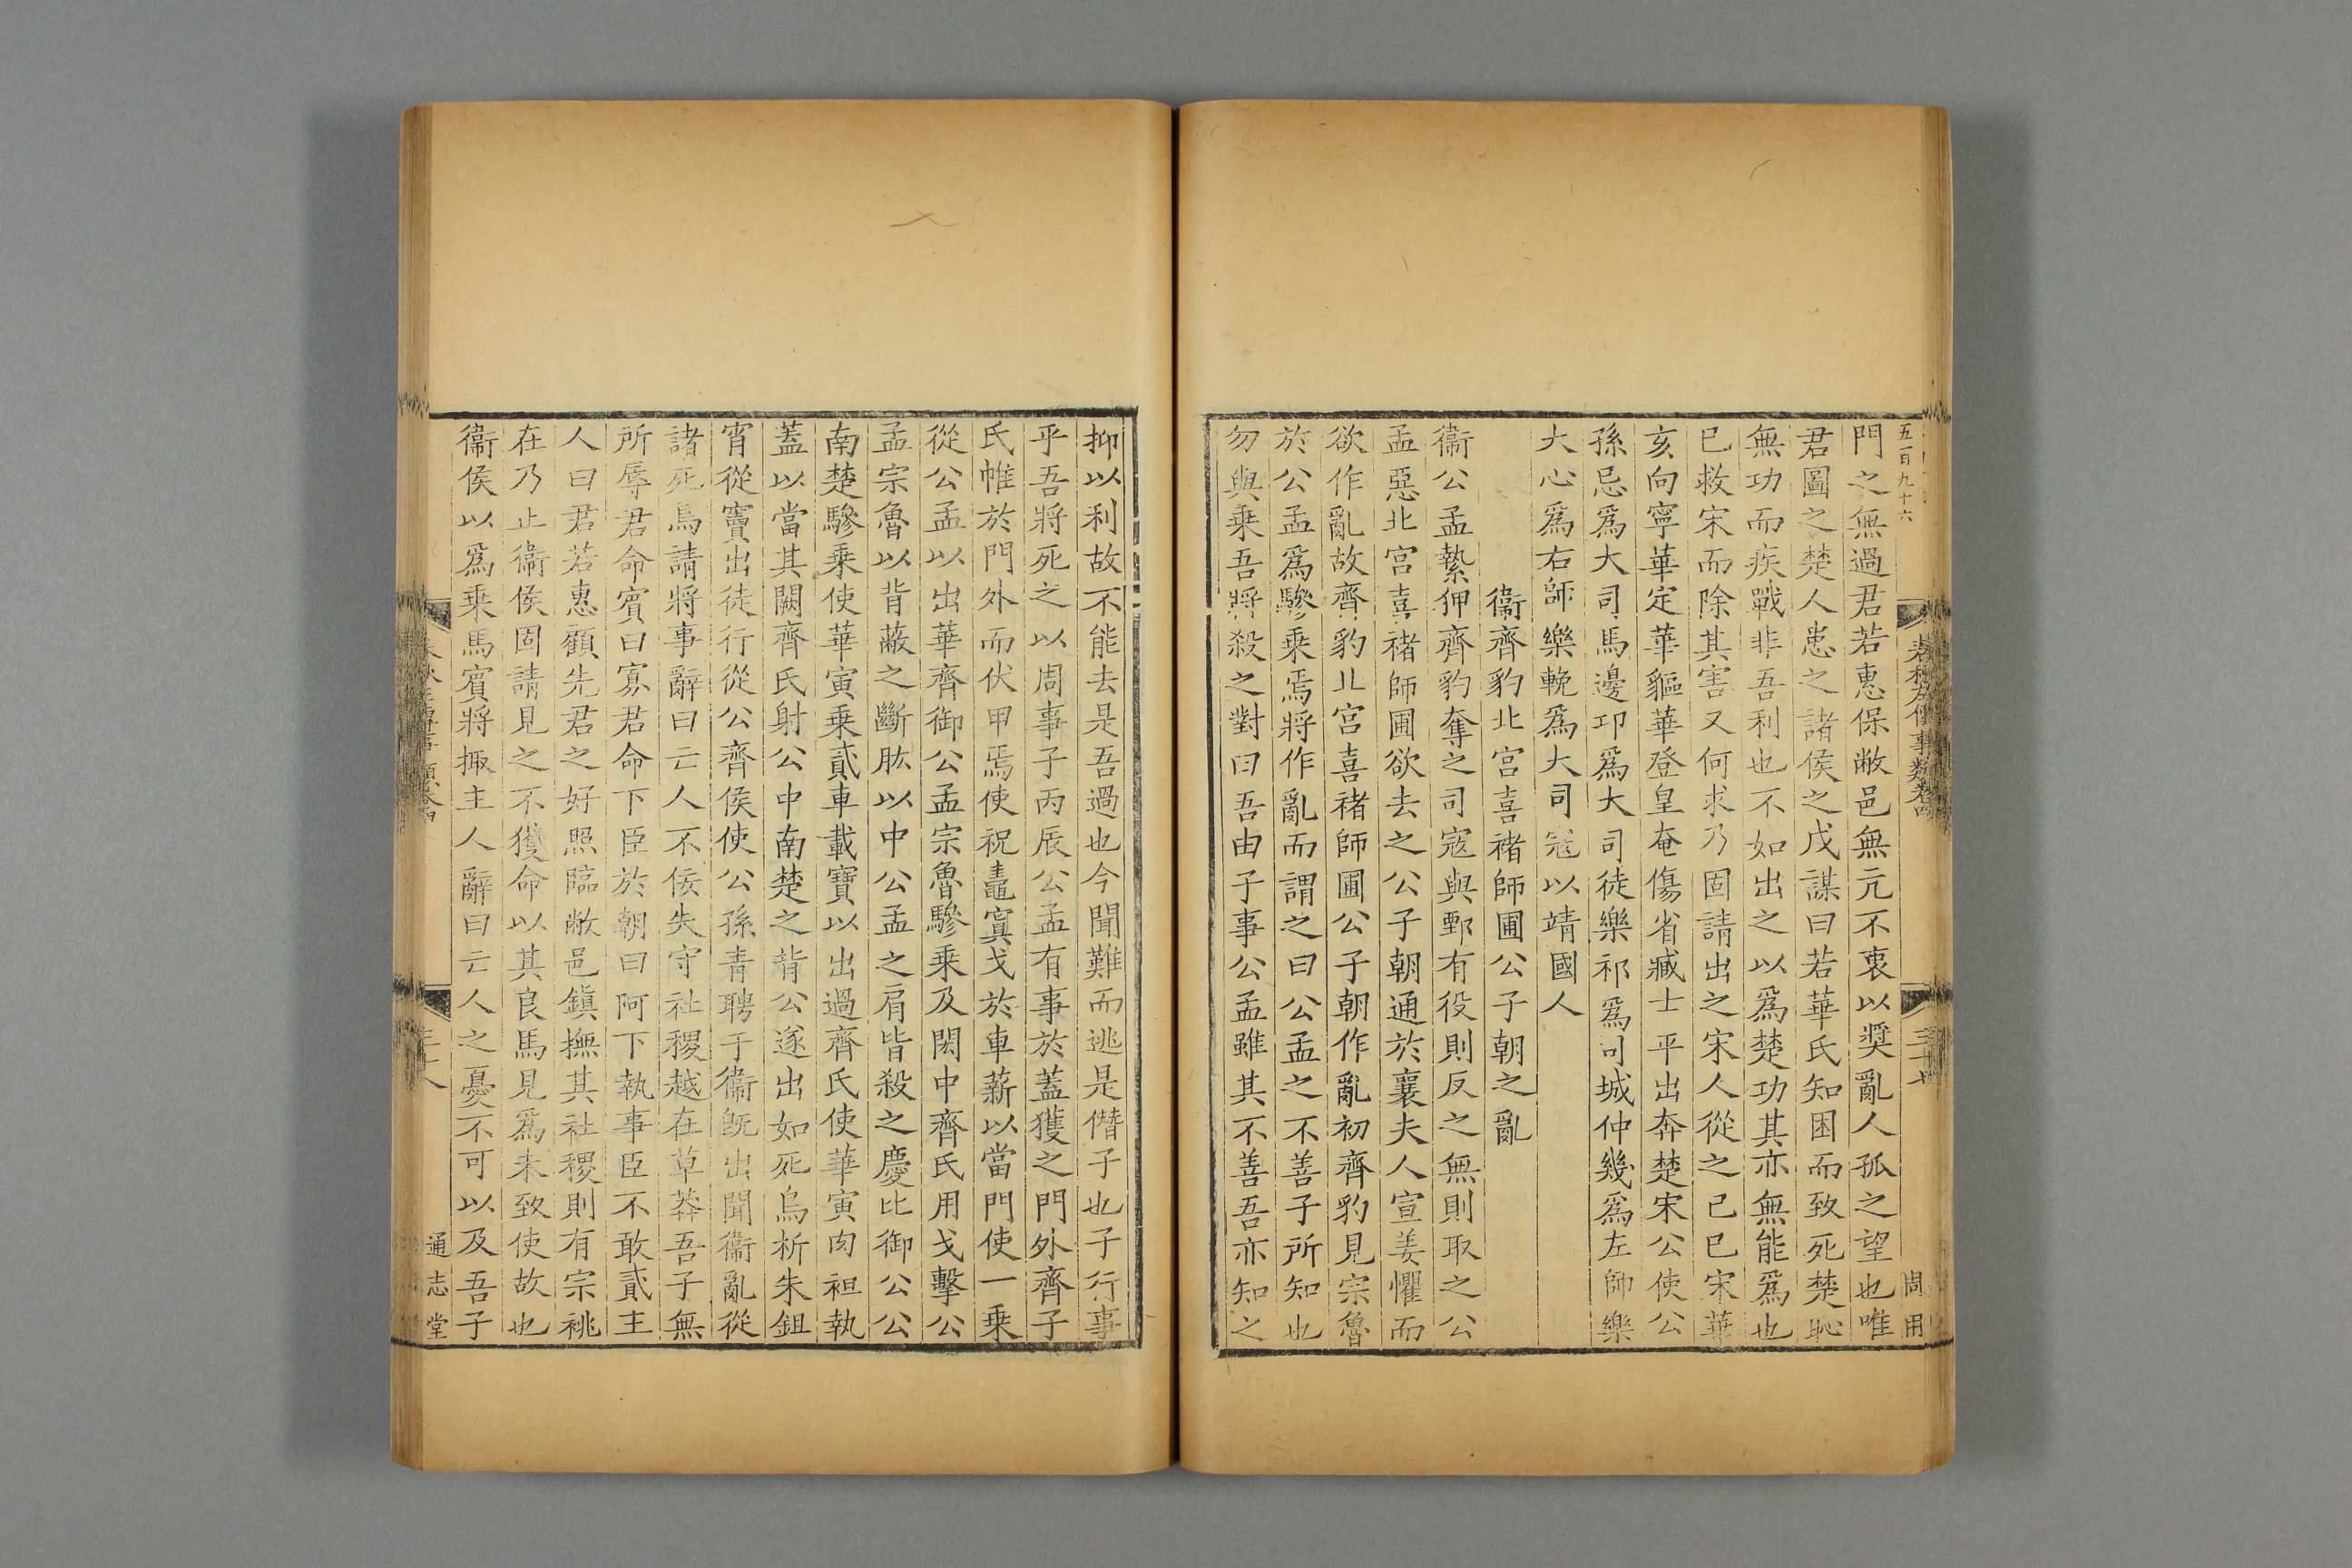 五百九十六
春秋左傳事類卷四
三十七
周用
門之無過君若惠保敝邑無亢不衷以奬亂人孤之望也唯
君圖之楚人患之諸侯之戍謀曰若華氏知困而致死楚恥
無功而疾戰非吾利也不如出之以爲楚功其亦無能爲也
已救宋而除其害又何求乃固請出之宋人從之己巳宋華
亥向寧華定華貙華登皇奄傷省臧士平出奔楚宋公使公
孫忌爲大司馬邊卭爲大司徒樂祁爲司城仲幾爲左師樂
大心爲右師樂輓爲大司寇以靖國人
衞齊豹北宫喜禇師圃公子朝之亂
衞公孟縶狎齊豹奪之司寇與鄄有役則反之無則取之公
孟惡北宫喜禇師圃欲去之公子朝通於襄夫人宣姜懼而
欲作亂故齊豹北宫喜禇師圃公子朝作亂初齊豹見宗魯
於公孟爲驂乗焉將作亂而謂之曰公孟之不善子所知也
勿與乗吾將殺之對曰吾由子事公孟雖其不善吾亦知之
抑以利故不能去是吾過也今聞難而逃是僭子也子行事
乎吾將死之以周事子丙辰公孟有事於蓋獲之門外齊子
氏帷於門外而伏甲焉使祝鼃寘戈於車薪以當門使一乗
從公孟以出華齊御公孟宗魯驂乗及閎中齊氏用戈擊公
孟宗魯以背蔽之斷肱以中公孟之肩皆殺之慶比御公公
南楚驂乗使華寅乗貳車載寶以出過齊氏使華寅肉袒執
蓋以當其闕齊氏射公中南楚之背公遂出如死烏析朱鉏
宵從竇出徒行從公齊侯使公孫青聘于衞旣出聞衞亂從
諸死烏請將事辭曰亡人不佞失守社稷越在草莽吾子無
所辱君命賓曰寡君命下臣於朝曰阿下執事臣不敢貳主
人曰君若惠顧先君之好照臨敝邑鎭撫其社稷則有宗祧
在乃止衞侯固請見之不獲命以其良馬見爲未致使故也
衞侯以爲乗馬賓將掫主人辭曰亡人之憂不可以及吾子
三十八
通志堂